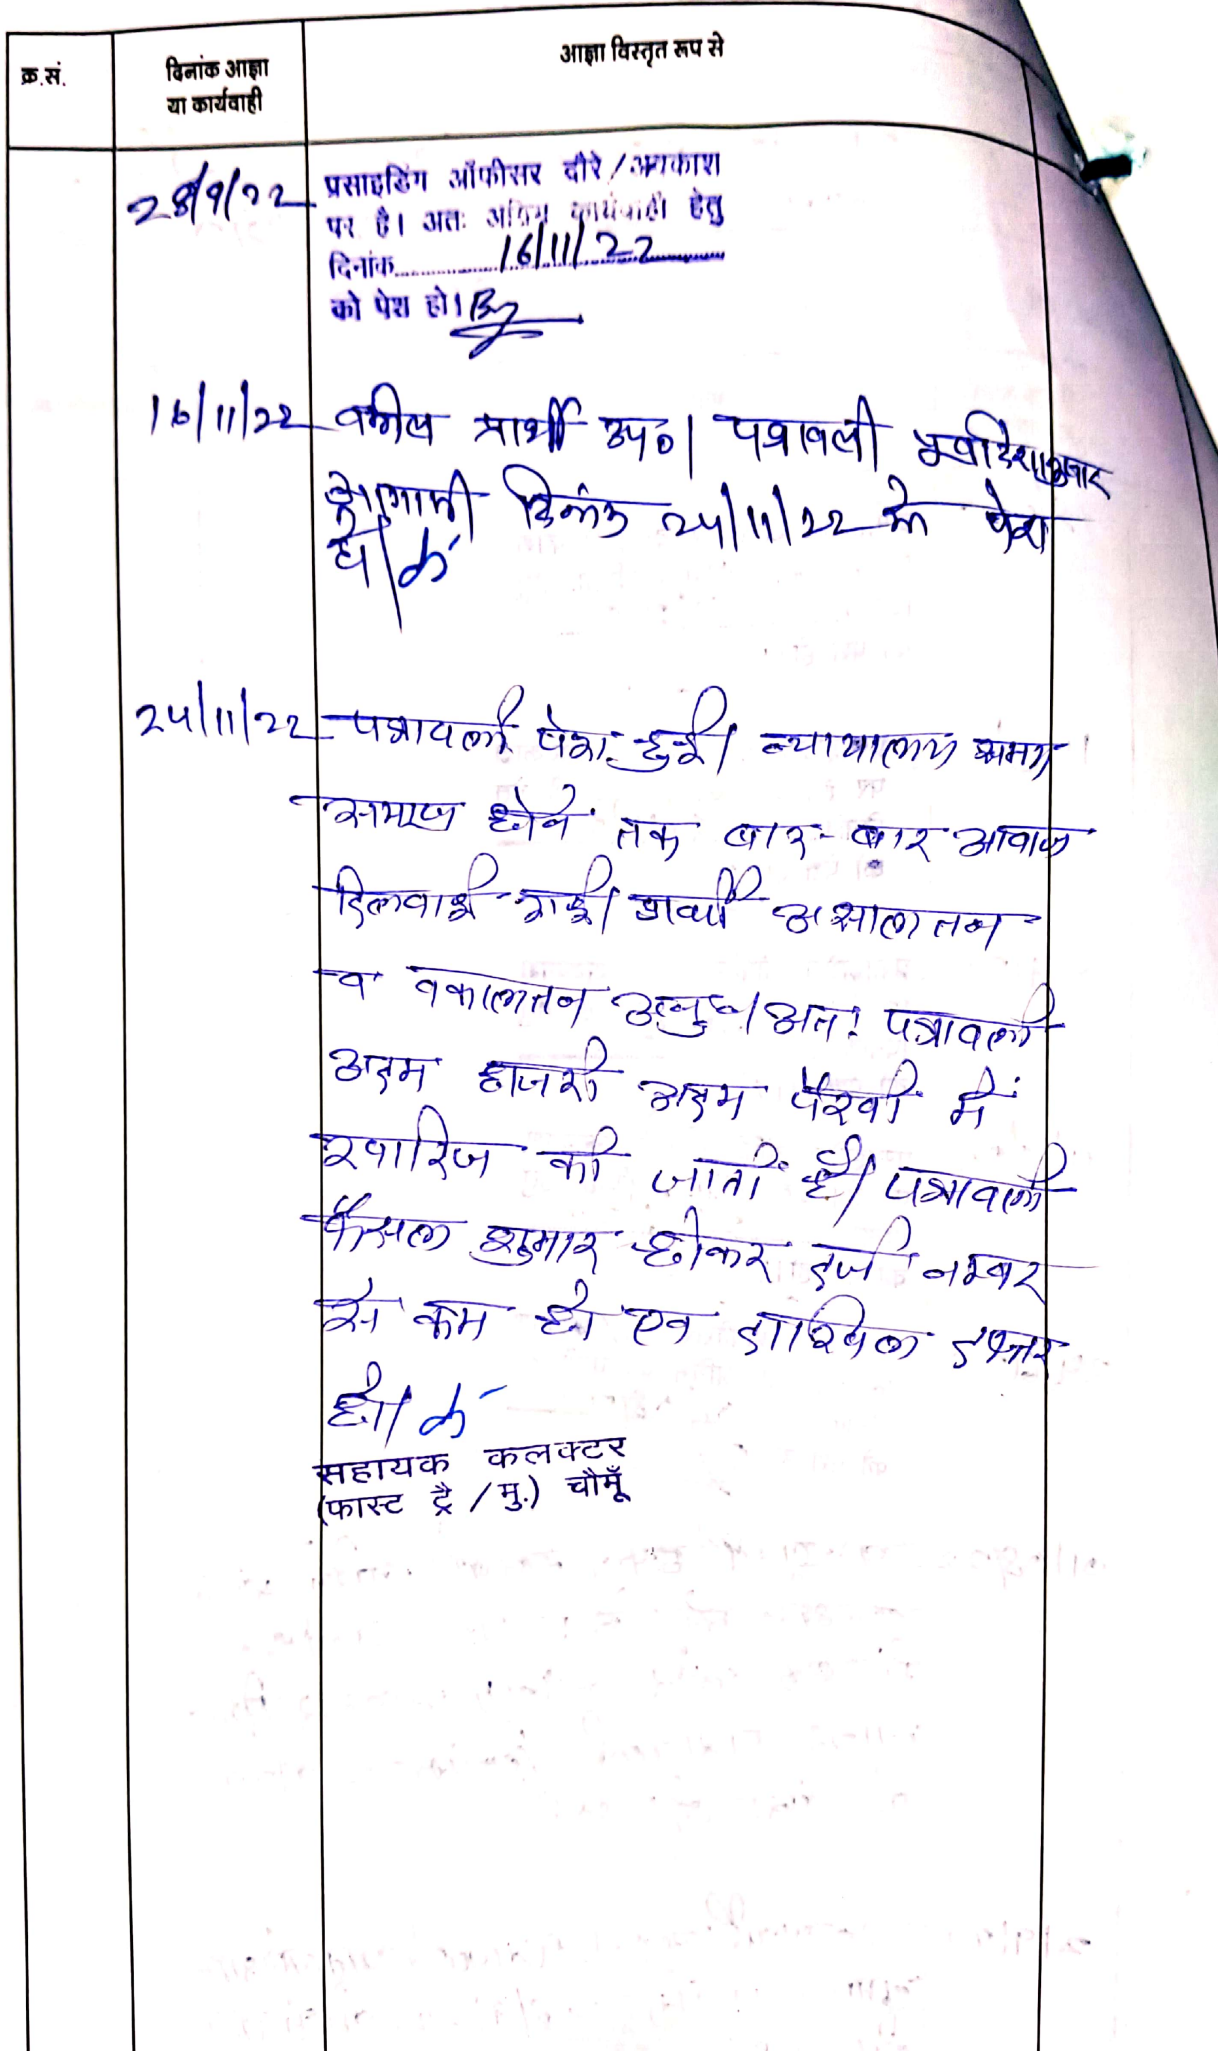 क्र.सं.
दिनांक आज्ञा
या कार्यवाही
आज्ञा विस्तृत रूप से
28/9/22 प्रसाइडिंग ऑफीसर दौरे/अवकाश
पर है। अतः अग्रिम कार्यवाही हेतु
दिनांक 16/11/22
को पेश हो।
16/11/22 वकील प्रार्थी उप०। पत्रावली पूर्वादेशानुसार
आगामी दिनांक 24/11/22 को पेश
हो।
24/11/22 पत्रावली पेश हुई। न्यायालय समय
समाप्त होने तक बार-बार आवाज
दिलवाई गई। प्रार्थी असालतन
व वकालतन अनु०। अतः पत्रावली
अदम हाजरी अदम पैरवी में
खारिज की जाती है। पत्रावली
फैसल शुमार होकर दर्ज नम्बर
से कम हो एव दाखिल दफ्तर
हो।
सहायक कलक्टर
(फास्ट ट्रै/मु.) चौमूँ